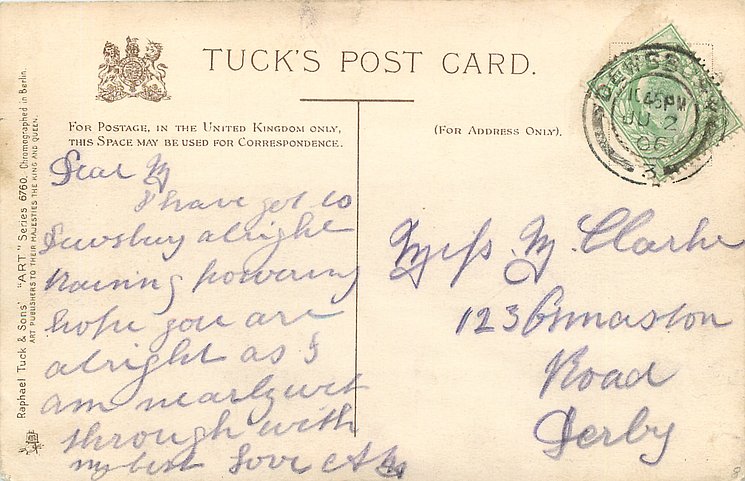 TUCK'S POST CARD.
FOR POSTAGE, IN THE UNITED KINGDOM ONLY,
THIS SPACE MAY BE USED FOR CORRESPONDENCE.
(FOR ADDRESS ONLY).
Raphael Tuck & Sons' "ART" Series 6760. Chromographed in Berlin.
ART PUBLISHERS TO THEIR MAJESTIES THE KING AND QUEEN.
DEWSBURY
10.45PM
JU 2
06
Dear M
I have got to
Dewsbury alright
Raining
hope you are
alright as I
am nearly wet
through with
my best love
Miss. M. Clarke
123 Osmaston
Road
Derby
8